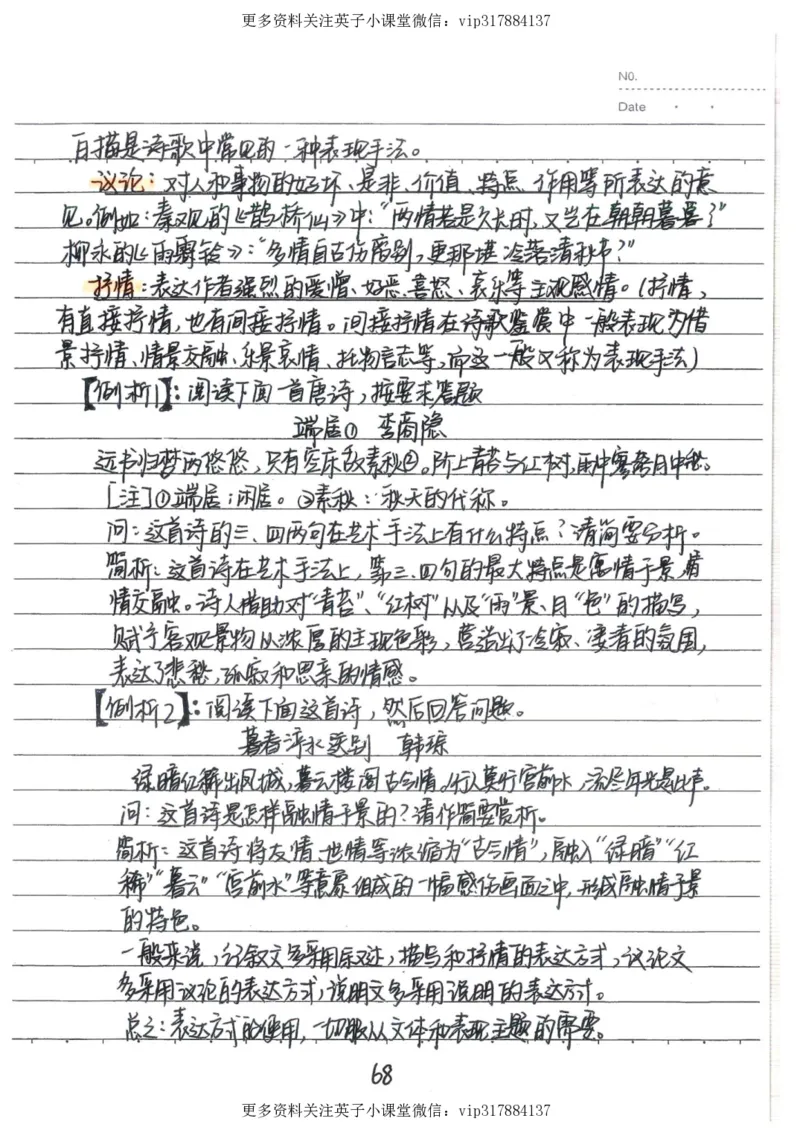 更多资料关注英子小课堂微信：vip317884137
N0.
Date
白描是诗歌中常见的一种表现手法。
议论：对人和事物的好坏、是非、价值、特点、作用等所表达的意
见。例如：秦观的《鹊桥仙》中："两情若是久长时，又岂在朝朝暮暮？"
柳永的《雨霖铃》："多情自古伤离别，更那堪冷落清秋节？"
抒情：表达作者强烈的爱憎、好恶、喜怒、哀乐等主观感情。（抒情，
有直接抒情，也有间接抒情。间接抒情在诗歌鉴赏中一般表现为借
景抒情、情景交融、乐景哀情、托物言志等，而这一般又称为表现手法）
【例析1】：阅读下面一首唐诗，按要求答题
端居① 李商隐
远书归梦两悠悠，只有空床敌素秋②。阶上青苔与红树，雨中寥落月中愁。
［注］①端居：闲居。②素秋：秋天的代称。
问：这首诗的三、四两句在艺术手法上有什么特点？请简要分析。
简析：这首诗在艺术手法上，第三、四句的最大特点是寓情于景，情
情交融。诗人借助对"青苔"、"红树"以及"雨"景、月"色"的描写，
赋予客观景物以浓厚的主观色彩，营造出了冷寂、凄清的氛围，
表达了悲愁，孤寂和思亲的情感。
【例析2】：阅读下面这首诗，然后回答问题。
暮春浐水送别 韩琮
绿暗红稀出凤城，暮云楼阁古今情。行人莫听宫前水，流尽年光是此声。
问：这首诗是怎样融情于景的？请作简要赏析。
简析：这首诗将友情、世情等浓缩为"古今情"，融入"绿暗""红
稀""暮云""宫前水"等意象组成的一幅感伤画面之中，形成融情于景
的特色。
一般来说，记叙文多采用叙述，描写和抒情的表达方式，议论文
多采用议论的表达方式，说明文多采用说明的表达方式。
总之：表达方式的使用，一切服从文体和表现主题的需要。
68
更多资料关注英子小课堂微信：vip317884137